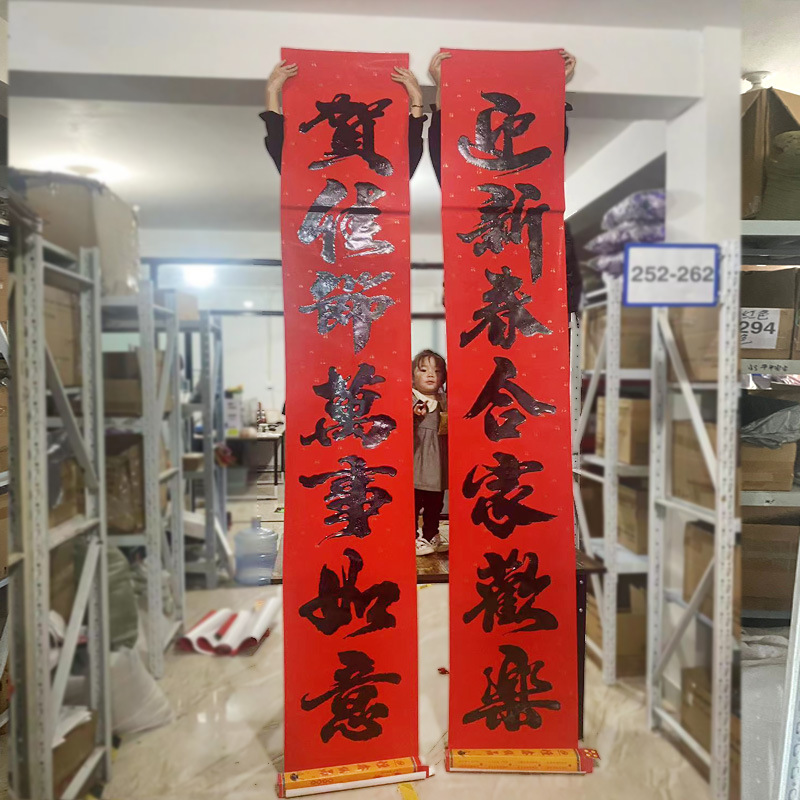 迎新春合家歡樂
賀佳節萬事如意
252-262
红色
294